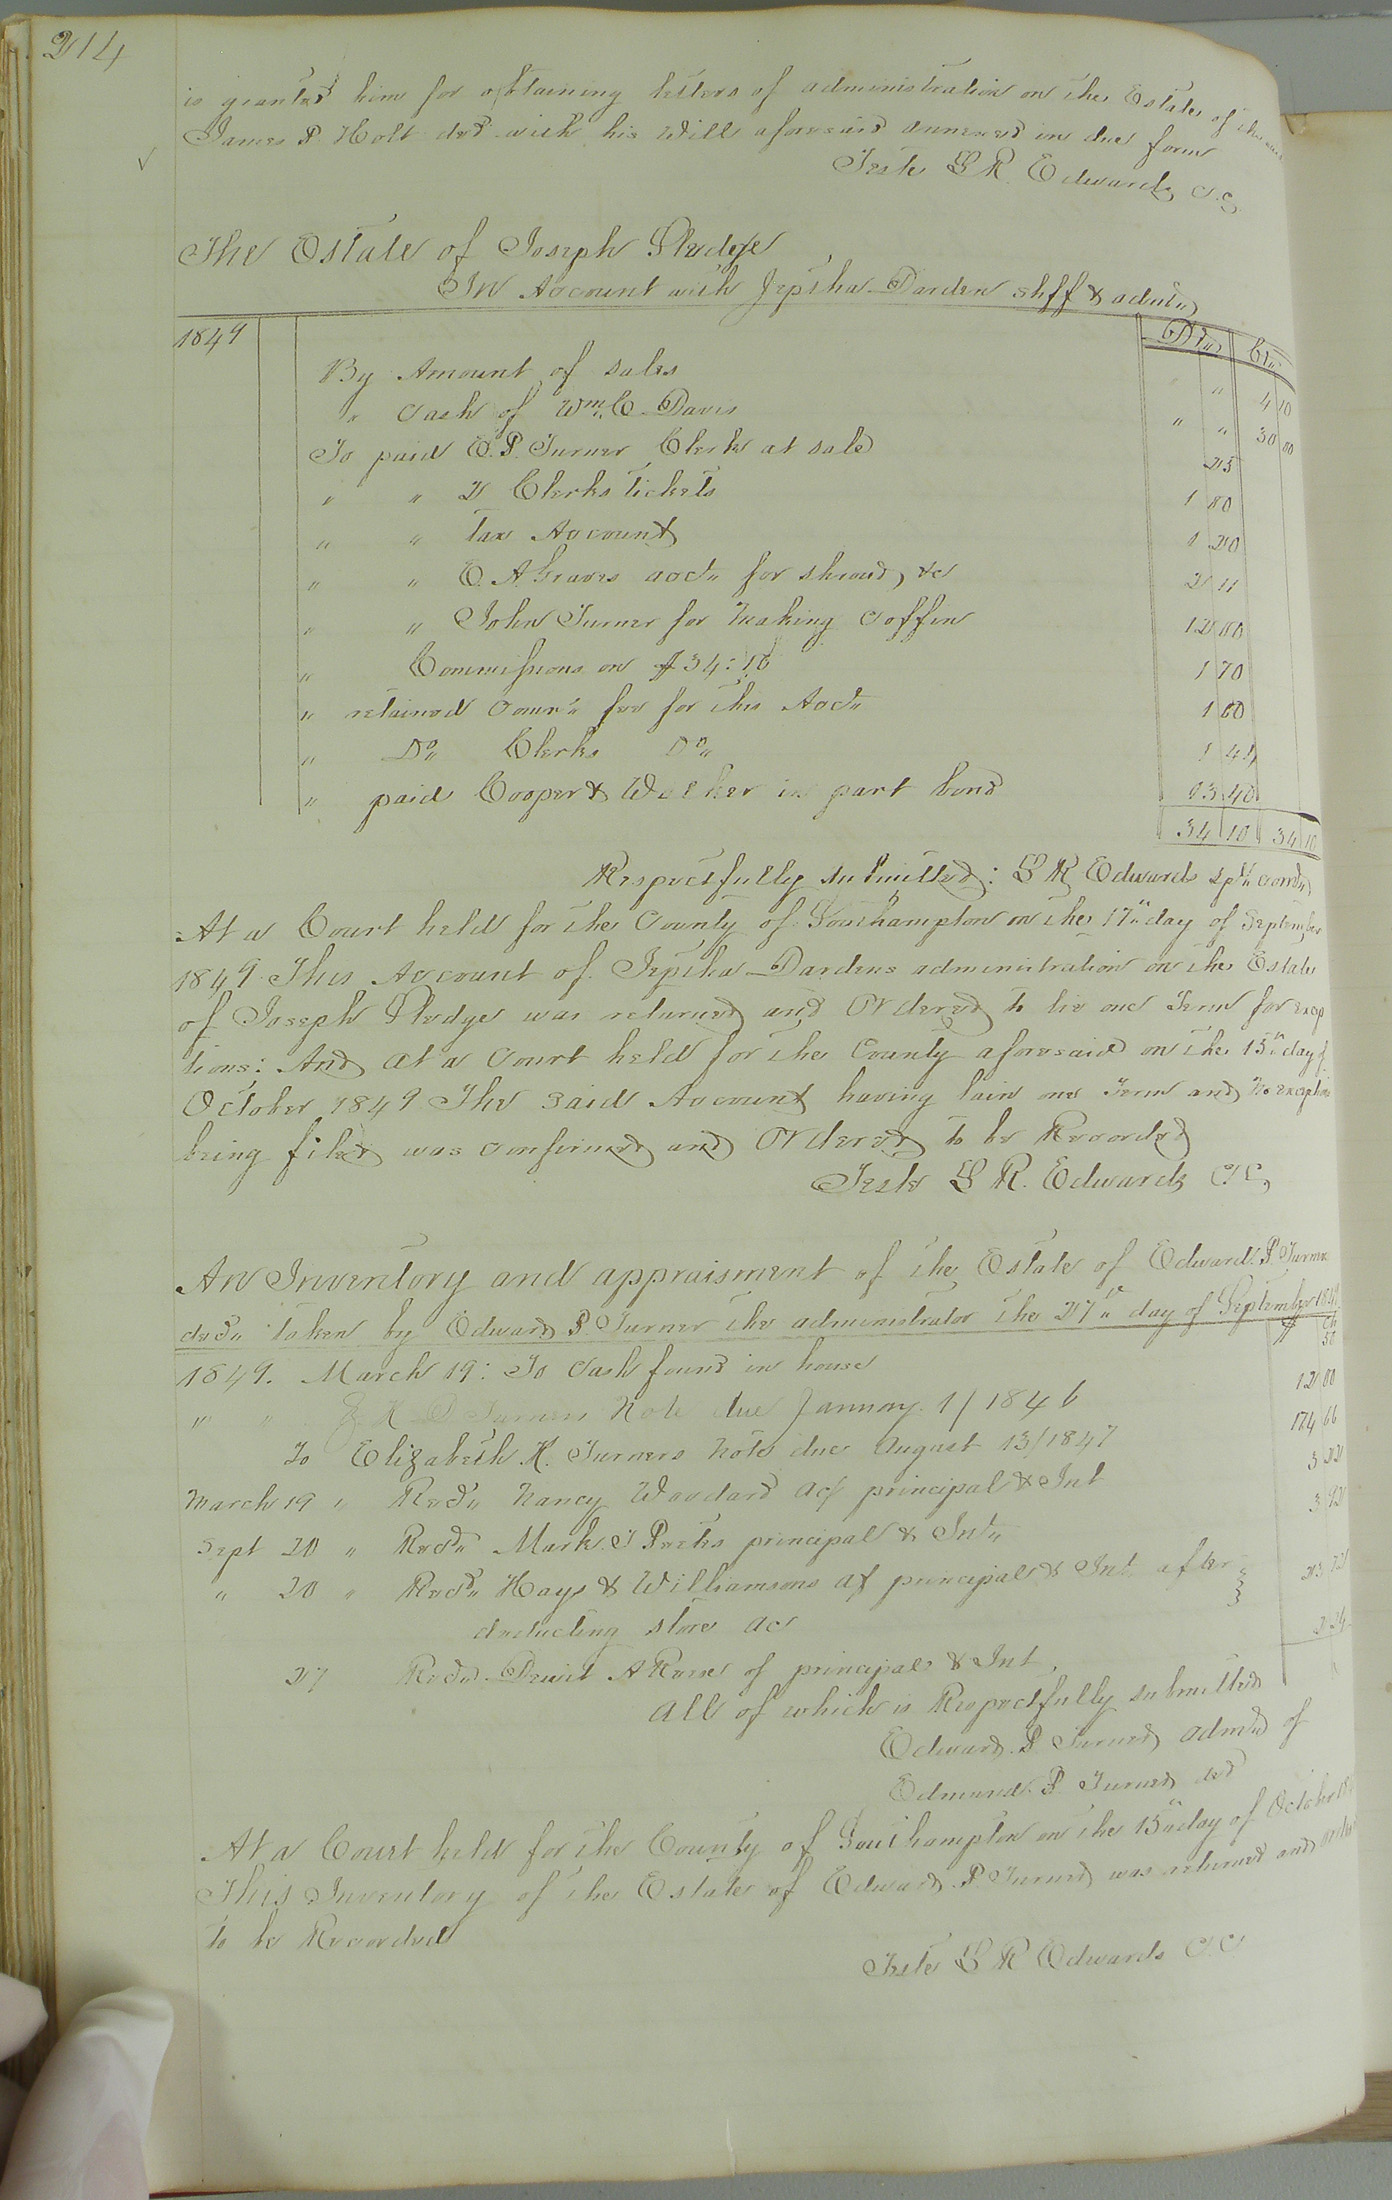 214
is granted him for obtaining letters of administration on the Estate of the said
James P. Holt decd with his Will aforesaid annexed in due form
Teste L R. Edwards C.C.
The Estate of Joseph Sledge
In Account with Jeptha Darden shff & admr
1849 Drs Crs
By Amount of sales " " 4 10
" Cash of Wm. C. Davis " " 30 00
To paid E. P. Turner Clerk at sale 25
" " 2 Clerks tickets 1 00
" " Tax Account 1 20
" " E. A Graves acct for shroud, &c 2 11
" " John Turner for making coffin 12 00
" Commissions on $34:10 1 70
" retained Comrs fee for this Acct 1 00
" Do Clerks Do 1 44
" paid Cooper & Walker in part bond 13 40
34 10 34 10
Respectfully submitted: L R Edwards spl. comr
At a Court held for the County of Southampton on the 17th day of September
1849 This Account of Jeptha Dardens administration on the Estate
of Joseph Sledge was returned and Ordered to lie one Term for excep
tions: And at a Court held for the County aforesaid on the 15th day of
October 1849 The said Account having lain one Term and no exceptions
being filed was confirmed and Ordered to be Recorded
Teste L R. Edwards C.C.
An Inventory and appraisment of the Estate of Edward P Turner
decd taken by Edward P. Turner the administrator the 27th day of September 1849
1849. March 19: To Cash found in house 50
" " D Turners Note due January 1/1846 12 00
To Elizabeth H. Turners Note due August 13/1847 174 66
March 19 " Recd Nancy Woodard of principal & Int 3 22
Sept 20 " Recd Mark principal & Int 3 12
" 20 " Recd Hays & Williamsons of principal & Int after
deducting store ac
27 Recd A of principal & Int 2 24
All of which is Respectfully submitted
Edward. P Turner admr of
Edmund. P Turner decd
At a Court held for the County of Southampton on the 15th day of October
This Inventory of the Estate of Edward. P Turner was returned and
to be Recorded
Teste L R Edwards C.C